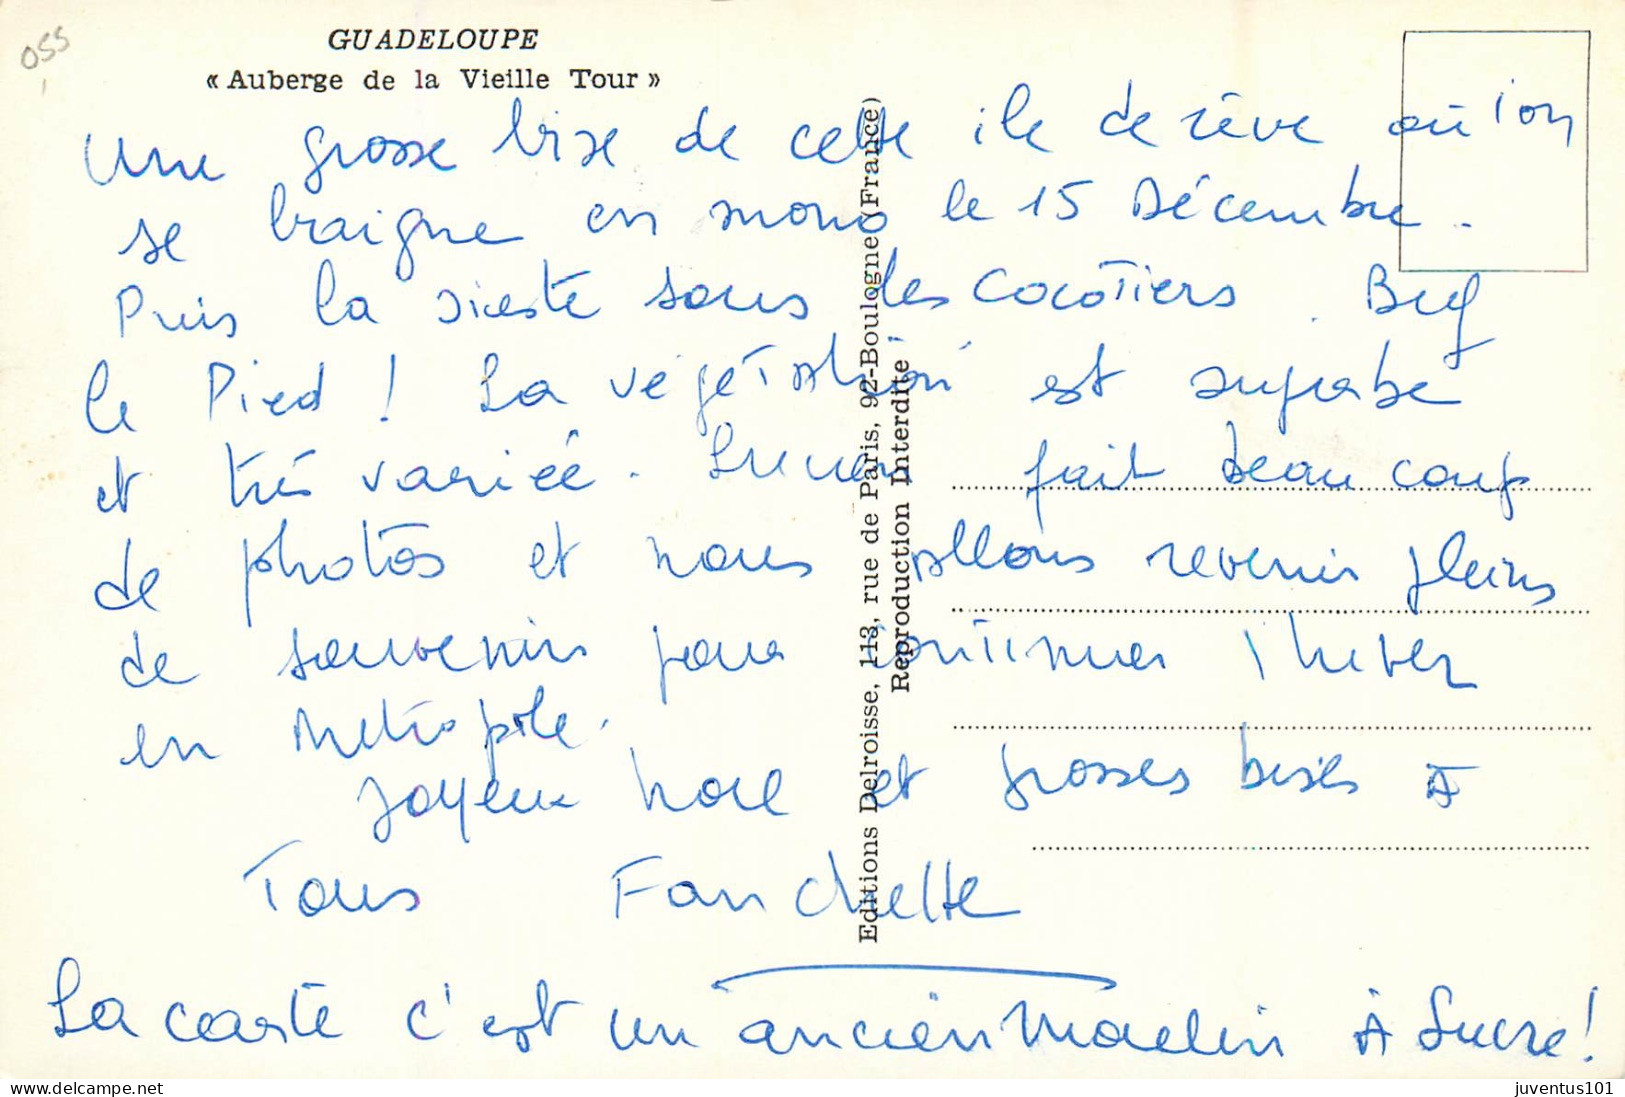 055
GUADELOUPE
« Auberge de la Vieille Tour »
Une grosse bise de cette ile de rêve où l'on
se baigne en mono le 15 Décembre.
Puis la sieste sous les cocotiers. Bref
le Pied ! La végétation est superbe
et très variée. Lucien fait beaucoup
de photos et nous allons revenir pleins
de souvenirs pour continuer l'hiver
en Métropole.
Joyeux Noël et grosses bises à
Tous Fanchette
La carte c'est un ancien Moulin à Sucre !
Editions Delroisse, 113, rue de Paris, 92-Boulogne (France)
Reproduction Interdite
juventus101